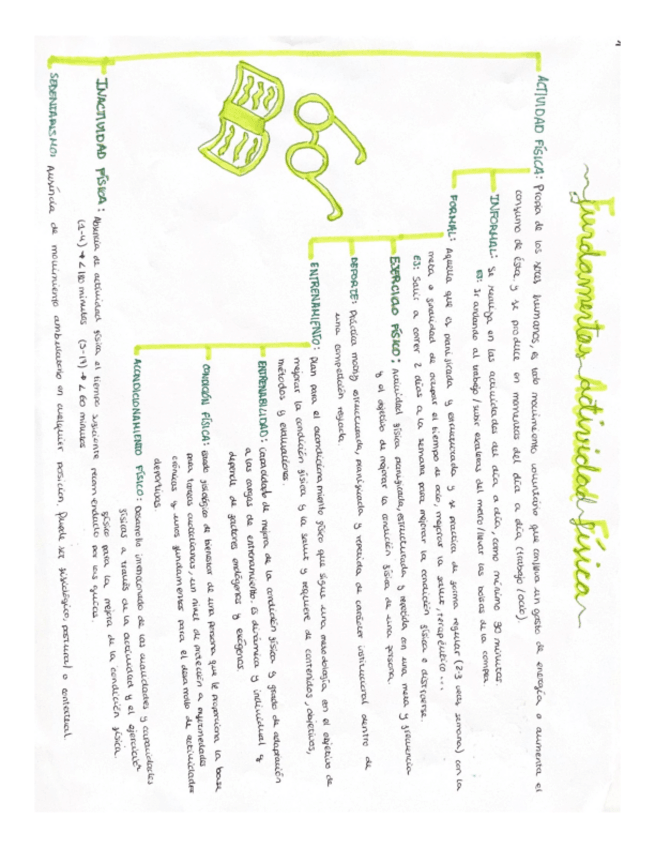 Fundamentos Actividad Física
ACTIVIDAD FÍSICA: Propia de los seres humanos, es todo movimiento voluntario que conlleva un gasto de energía o aumenta el
consumo de ésta y se produce en momentos del día a día (trabajo/ocio).
INFORMAL: Se realiza en las actividades del día a día, como mínimo 30 minutos.
ES: Ir andando al trabajo/subir escaleras del metro/llevar las bolsas de la compra.
FORMAL: Aquella que es planificada y estructurada y se practica de forma regular (2-3 veces semana) con la
meta o finalidad de ocupar el tiempo de ocio, mejorar la salud, terapéutico...
ES: Salir a correr 2 días a la semana para mejorar la condición física o distraerse.
EJERCICIO FÍSICO: Actividad física planificada, estructurada y repetida con una meta y frecuencia
y el objetivo de mejorar la condición física de una persona.
DEPORTE: Práctica motriz estructurada, planificada y repetida de carácter institucional dentro de
una competición reglada.
ENTRENAMIENTO: Plan para el acondicionamiento físico que sigue una metodología en el objetivo de
mejorar la condición física y la salud y requiere de contenidos, objetivos,
métodos y evaluaciones.
ENTRENABILIDAD: Capacidad de mejora de la condición física y grado de adaptación
a las cargas de entrenamiento. Es dinámica y individual y
depende de factores endógenos y exógenos.
CONDICIÓN FÍSICA: Estado fisiológico de bienestar de una persona que le proporciona la base
para tareas cotidianas, un nivel de protección a enfermedades
crónicas y unos fundamentos para el desarrollo de actividades
deportivas.
ACONDICIONAMIENTO FÍSICO: Desarrollo intencionado de las cualidades y capacidades
físicas a través de la actividad y el ejercicio
físico para la mejora de la condición física.
INACTIVIDAD FÍSICA: Ausencia de actividad física el tiempo suficiente recomendado por las guías.
(1-4) → < 180 minutos (5-17) → < 60 minutos
SEDENTARISMO: Ausencia de movimiento ambulatorio en cualquier posición. Puede ser fisiológico, postural o contextual.